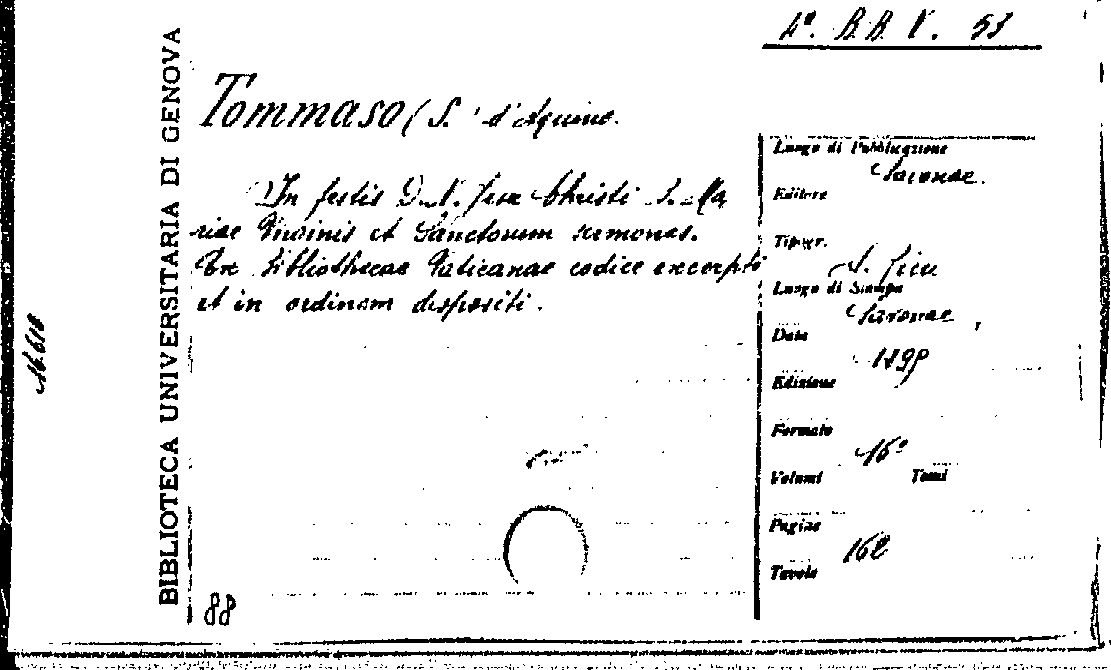 4ª. B.B. V. 53
BIBLIOTECA UNIVERSITARIA DI GENOVA
Tommaso (S. d'Aquino.
In festis D. N. Jesu Christi S. Ma
riae Virginis et Sanctorum sermones.
Ex Bibliothecae Vaticanae codice excerpti
et in ordinem dispositi.
Luogo di Pubblicazione
Savonae.
Editore
Tipogr.
Luogo di Stampa
Savonae,
Data
Edizione
Formato
16°
Volumi Tomi
Pagine
162
Tavole
88